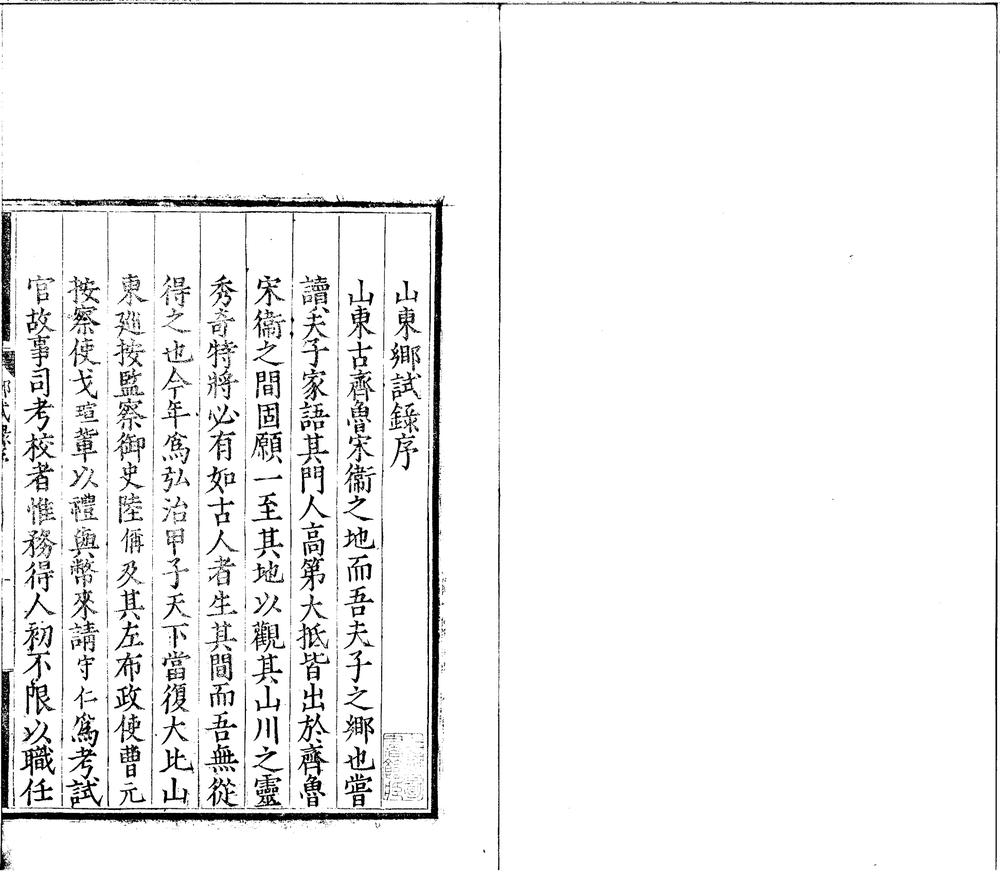 山東鄉試錄序
山東古齊魯宋衞之地而吾夫子之鄉也嘗
讀夫子家語其門人高第大抵皆出於齊魯
宋衞之間固願一至其地以觀其山川之靈
秀奇特將必有如古人者生其間而吾無從
得之也今年爲弘治甲子天下當復大比山
東廵按監察御史陸偁及其左布政使曹元
按察使戈瑄軰以禮與幣來請守仁爲考試
官故事司考校者惟務得人初不限以職任